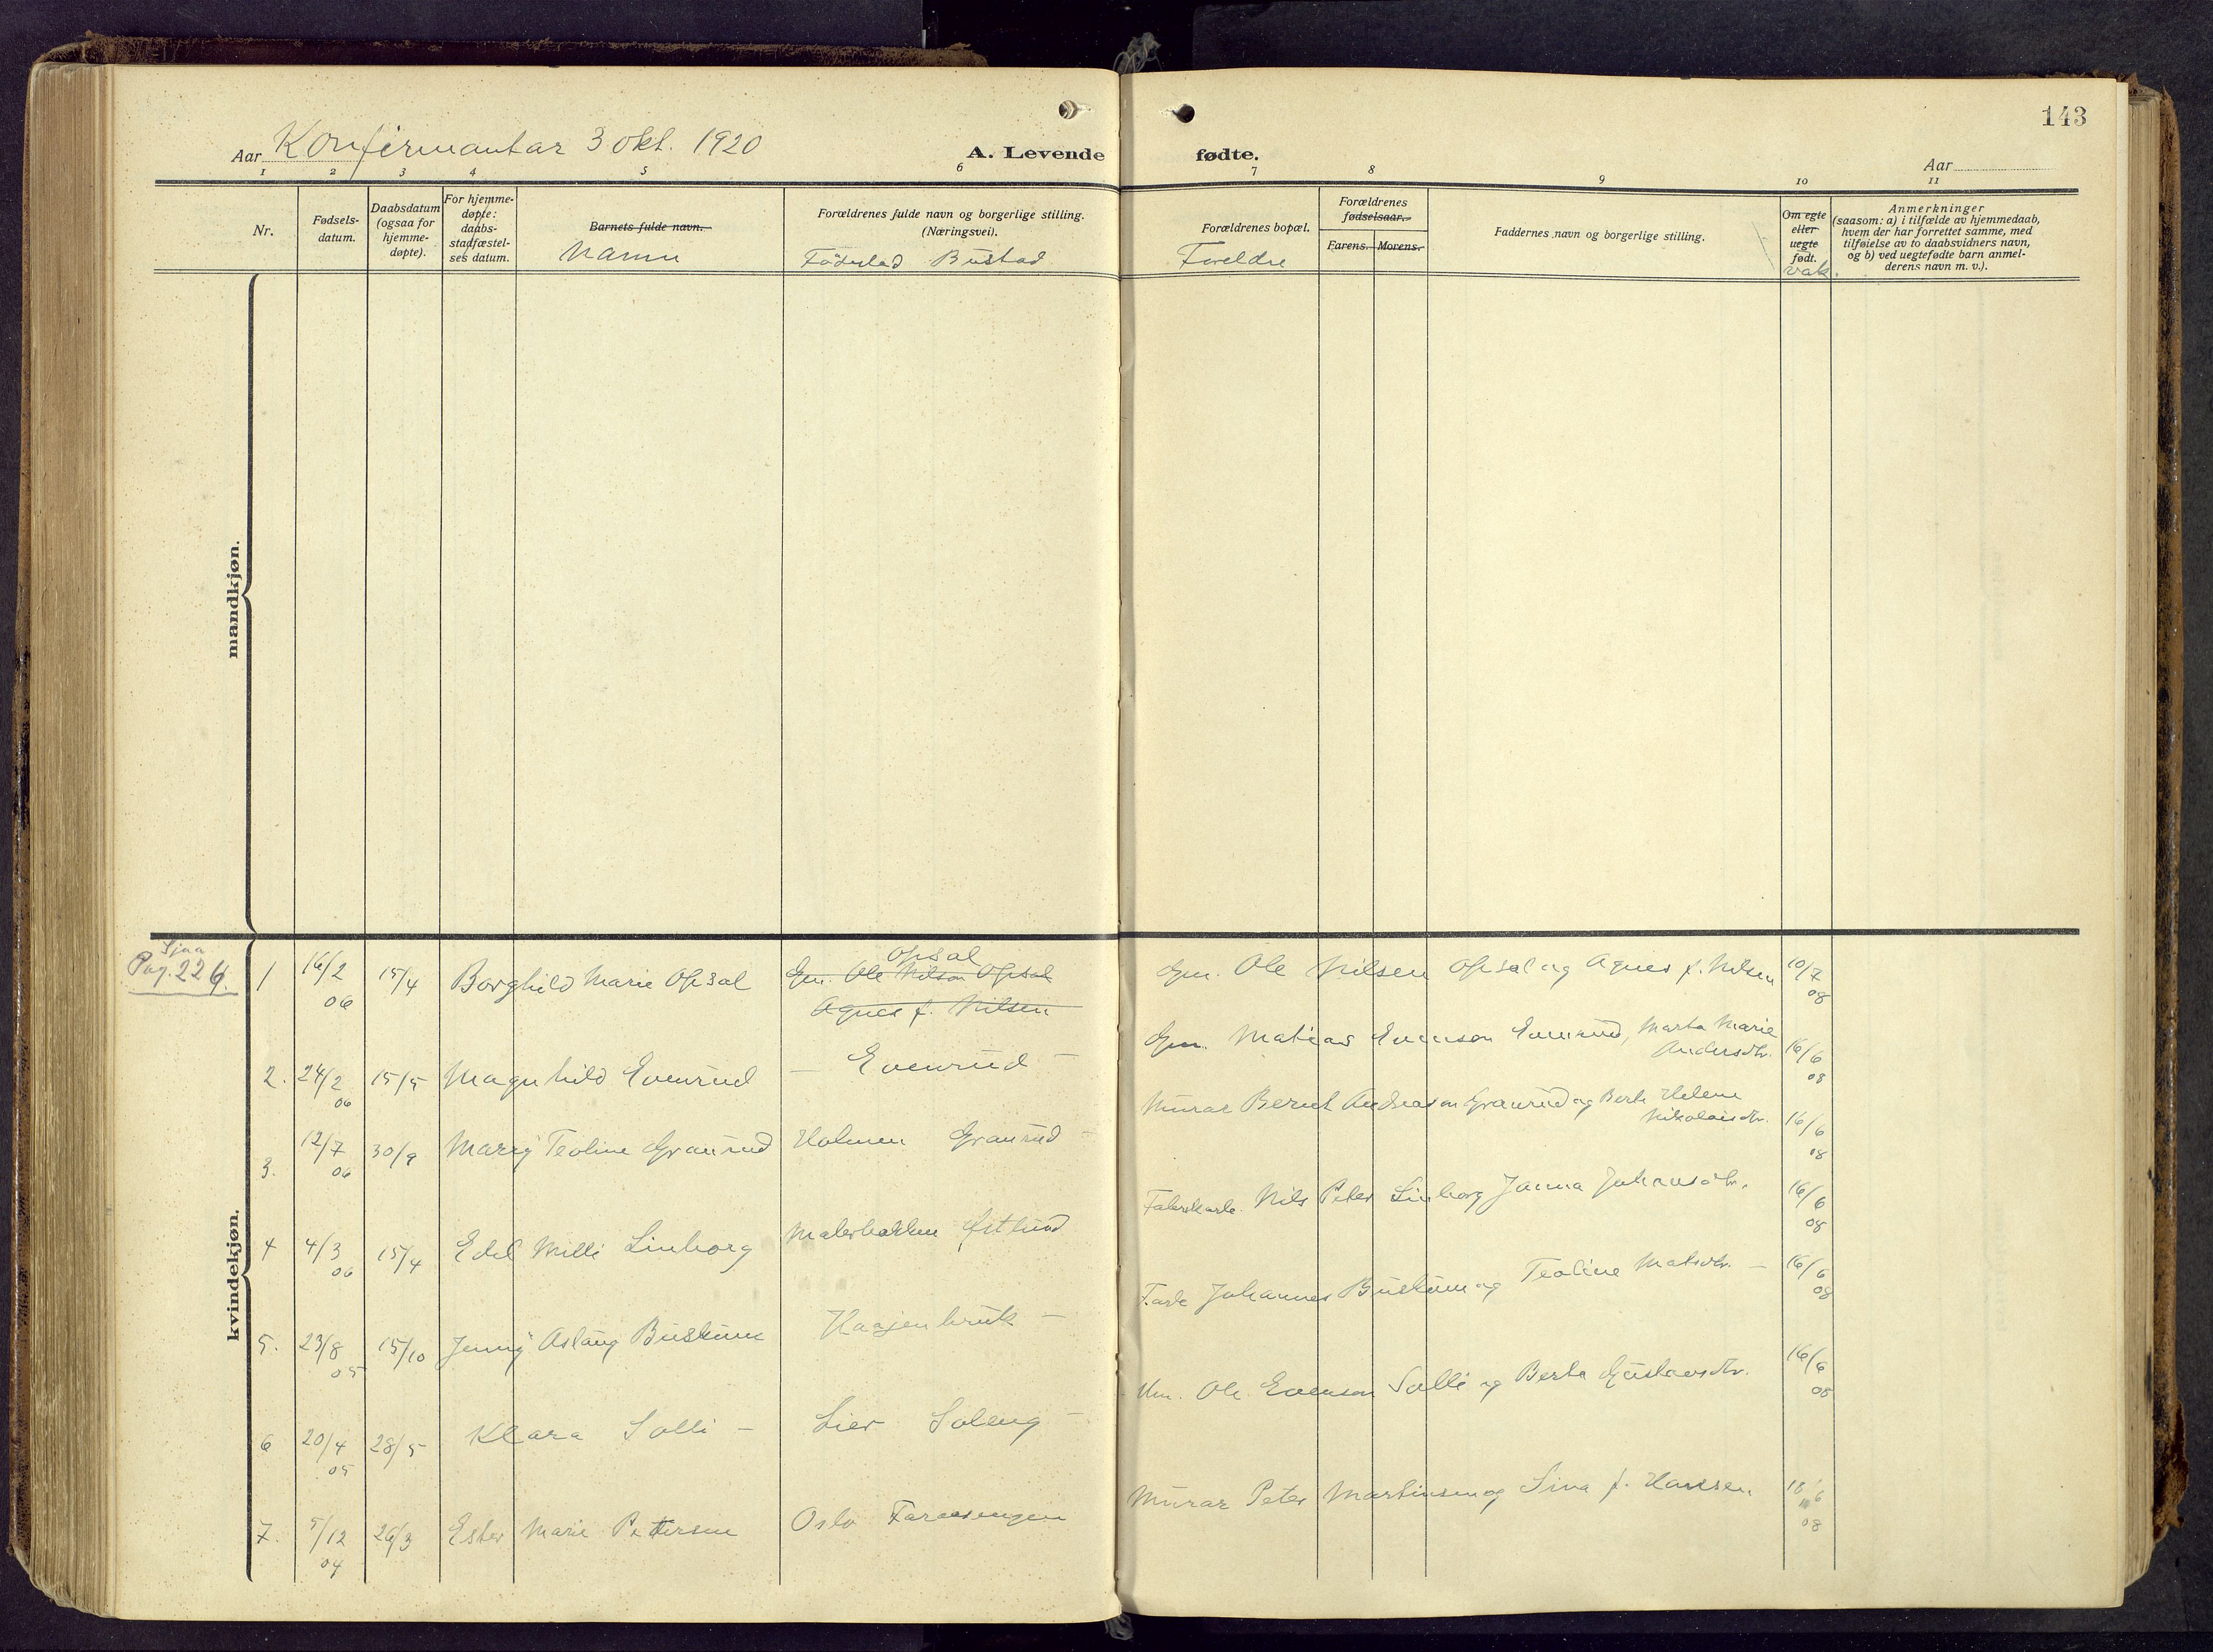 143
Aar Konfirmantar 3 okt. 1920
A. Levende fødte.
Aar
1 2 3 4 5 6 7 8 9 10 11
Nr.
Fødsels-
datum.
Daabsdatum
(ogsaa for
hjemme-
døpte).
For hjemme-
døpte:
daabs-
stadfæstel-
ses datum.
Barnets fulde navn.
Namn
Forældrenes fulde navn og borgerlige stilling.
(Næringsvei).
Födestad Bustad
Forældrenes bopæl.
Foreldre
Forældrenes
fødselsaar.
Farens. Morens.
Faddernes navn og borgerlige stilling.
Om egte
eller
uegte
født.
vak.
Anmerkninger
(saasom: a) i tilfælde av hjemmedaab,
hvem der har forrettet samme, med
tilføielse av to daabsvidners navn,
og b) ved uegtefødte barn anmel-
derens navn m. v.).
mandkjøn.
kvindekjøn.
Sjaa
Pag. 226.
1 16/2 06 15/4 Borghild Marie Opsal Opsal
Gm. Ole Nilsen Opsal
Agnes f. Nilsen
Gm. Ole Nilsen Opsal og Agnes f. Nilsen 10/7 08
2. 24/2 06 15/5 Magnhild Evenrud — Evenrud —
Gm. Matias Evensen Evenrud, Marta Marie
Andersdtr. 16/6 08
3. 12/7 06 30/9 Marry Teoline Granrud Holmen Granrud —
Murar Bernt Andreasen Granrud og Berte Helene
Nikolaisdtr. 16/6 08
4 4/3 06 15/4 Edel Milli Linborg Malerbakken Östlund
Nils Peter Linborg Janna Johansdtr. 16/6 08
5. 23/8 05 15/10 Jenny Aslaug Buskum Haajenbruk —
Johannes Buskum og Teoline Matsdtr. — 16/6 08
6 20/4 05 28/5 Klara Solli — Lier Soleng —
Hm. Ole Evensen Solli og Berte Gustavsdtr. 16/6 08
7. 5/12 04 26/3 Ester Marie Petersen Oslo
Murar Peter Martinsen og Lina f. Hansen. 18/6 08